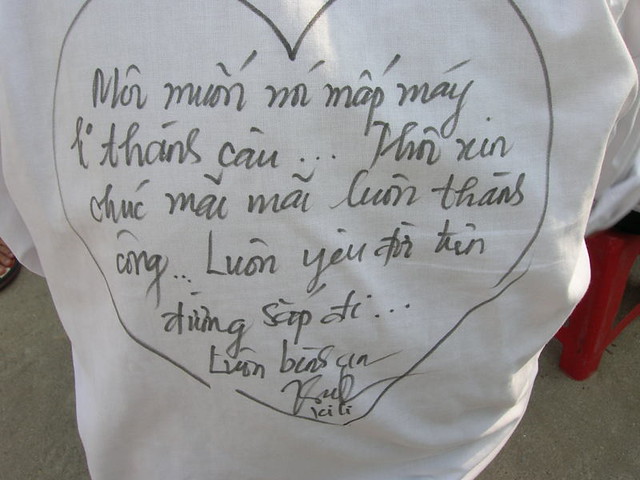 Môi muốn nói mấp máy
k thành câu... Thôi xin
chúc mãi mãi luôn thành
công... Luôn yêu đời tiến
đừng sốp đi...
Luôn bình an
kiti